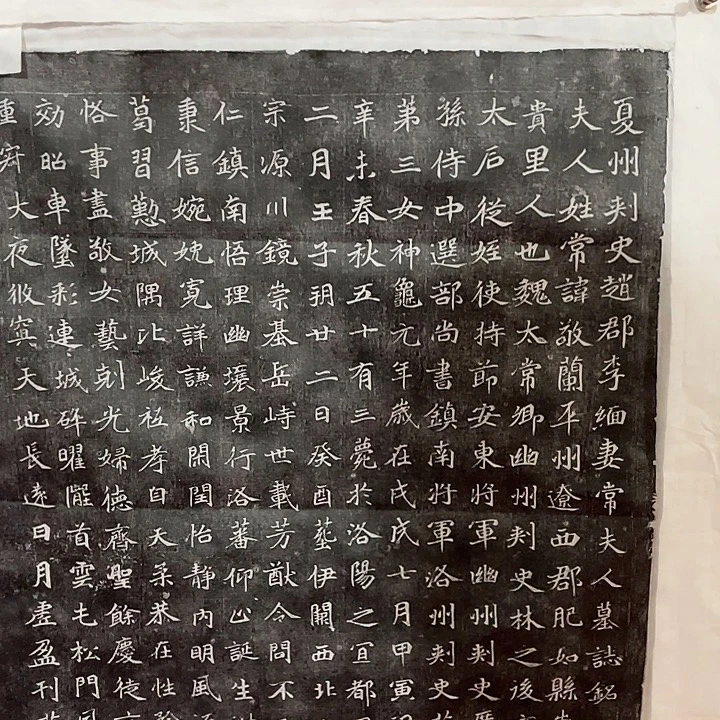 夏州刾史趙郡李緬妻常夫人墓誌銘
夫人姓常諱敬蘭平州遼西郡肥如縣
貴里人也魏太常卿幽州刾史林之後
太后從姪使持節安東將軍幽州刾史
孫侍中選部尚書鎮南將軍洛州刾史
第三女神龜元年歲在戊戌七月甲寅
辛未春秋五十有三薨於洛陽之宜都
二月壬子朔廿二日癸酉塟伊闕西北
宗源川鏡崇基岳峙世載芳猷令問不
仁鎮南悟理幽壤景行洛蕃仰止誕生
秉信婉娩寬詳謙和閑閨怡靜內明風
葛習懃城隅比峻祗孝自天柔恭在性
恪事盡敬女藝剋光婦德齊聖餘慶徒
効昭車墜彩連城碎曜隴首雲毛松門
大夜攸寘天地長遠日月虗盈刊